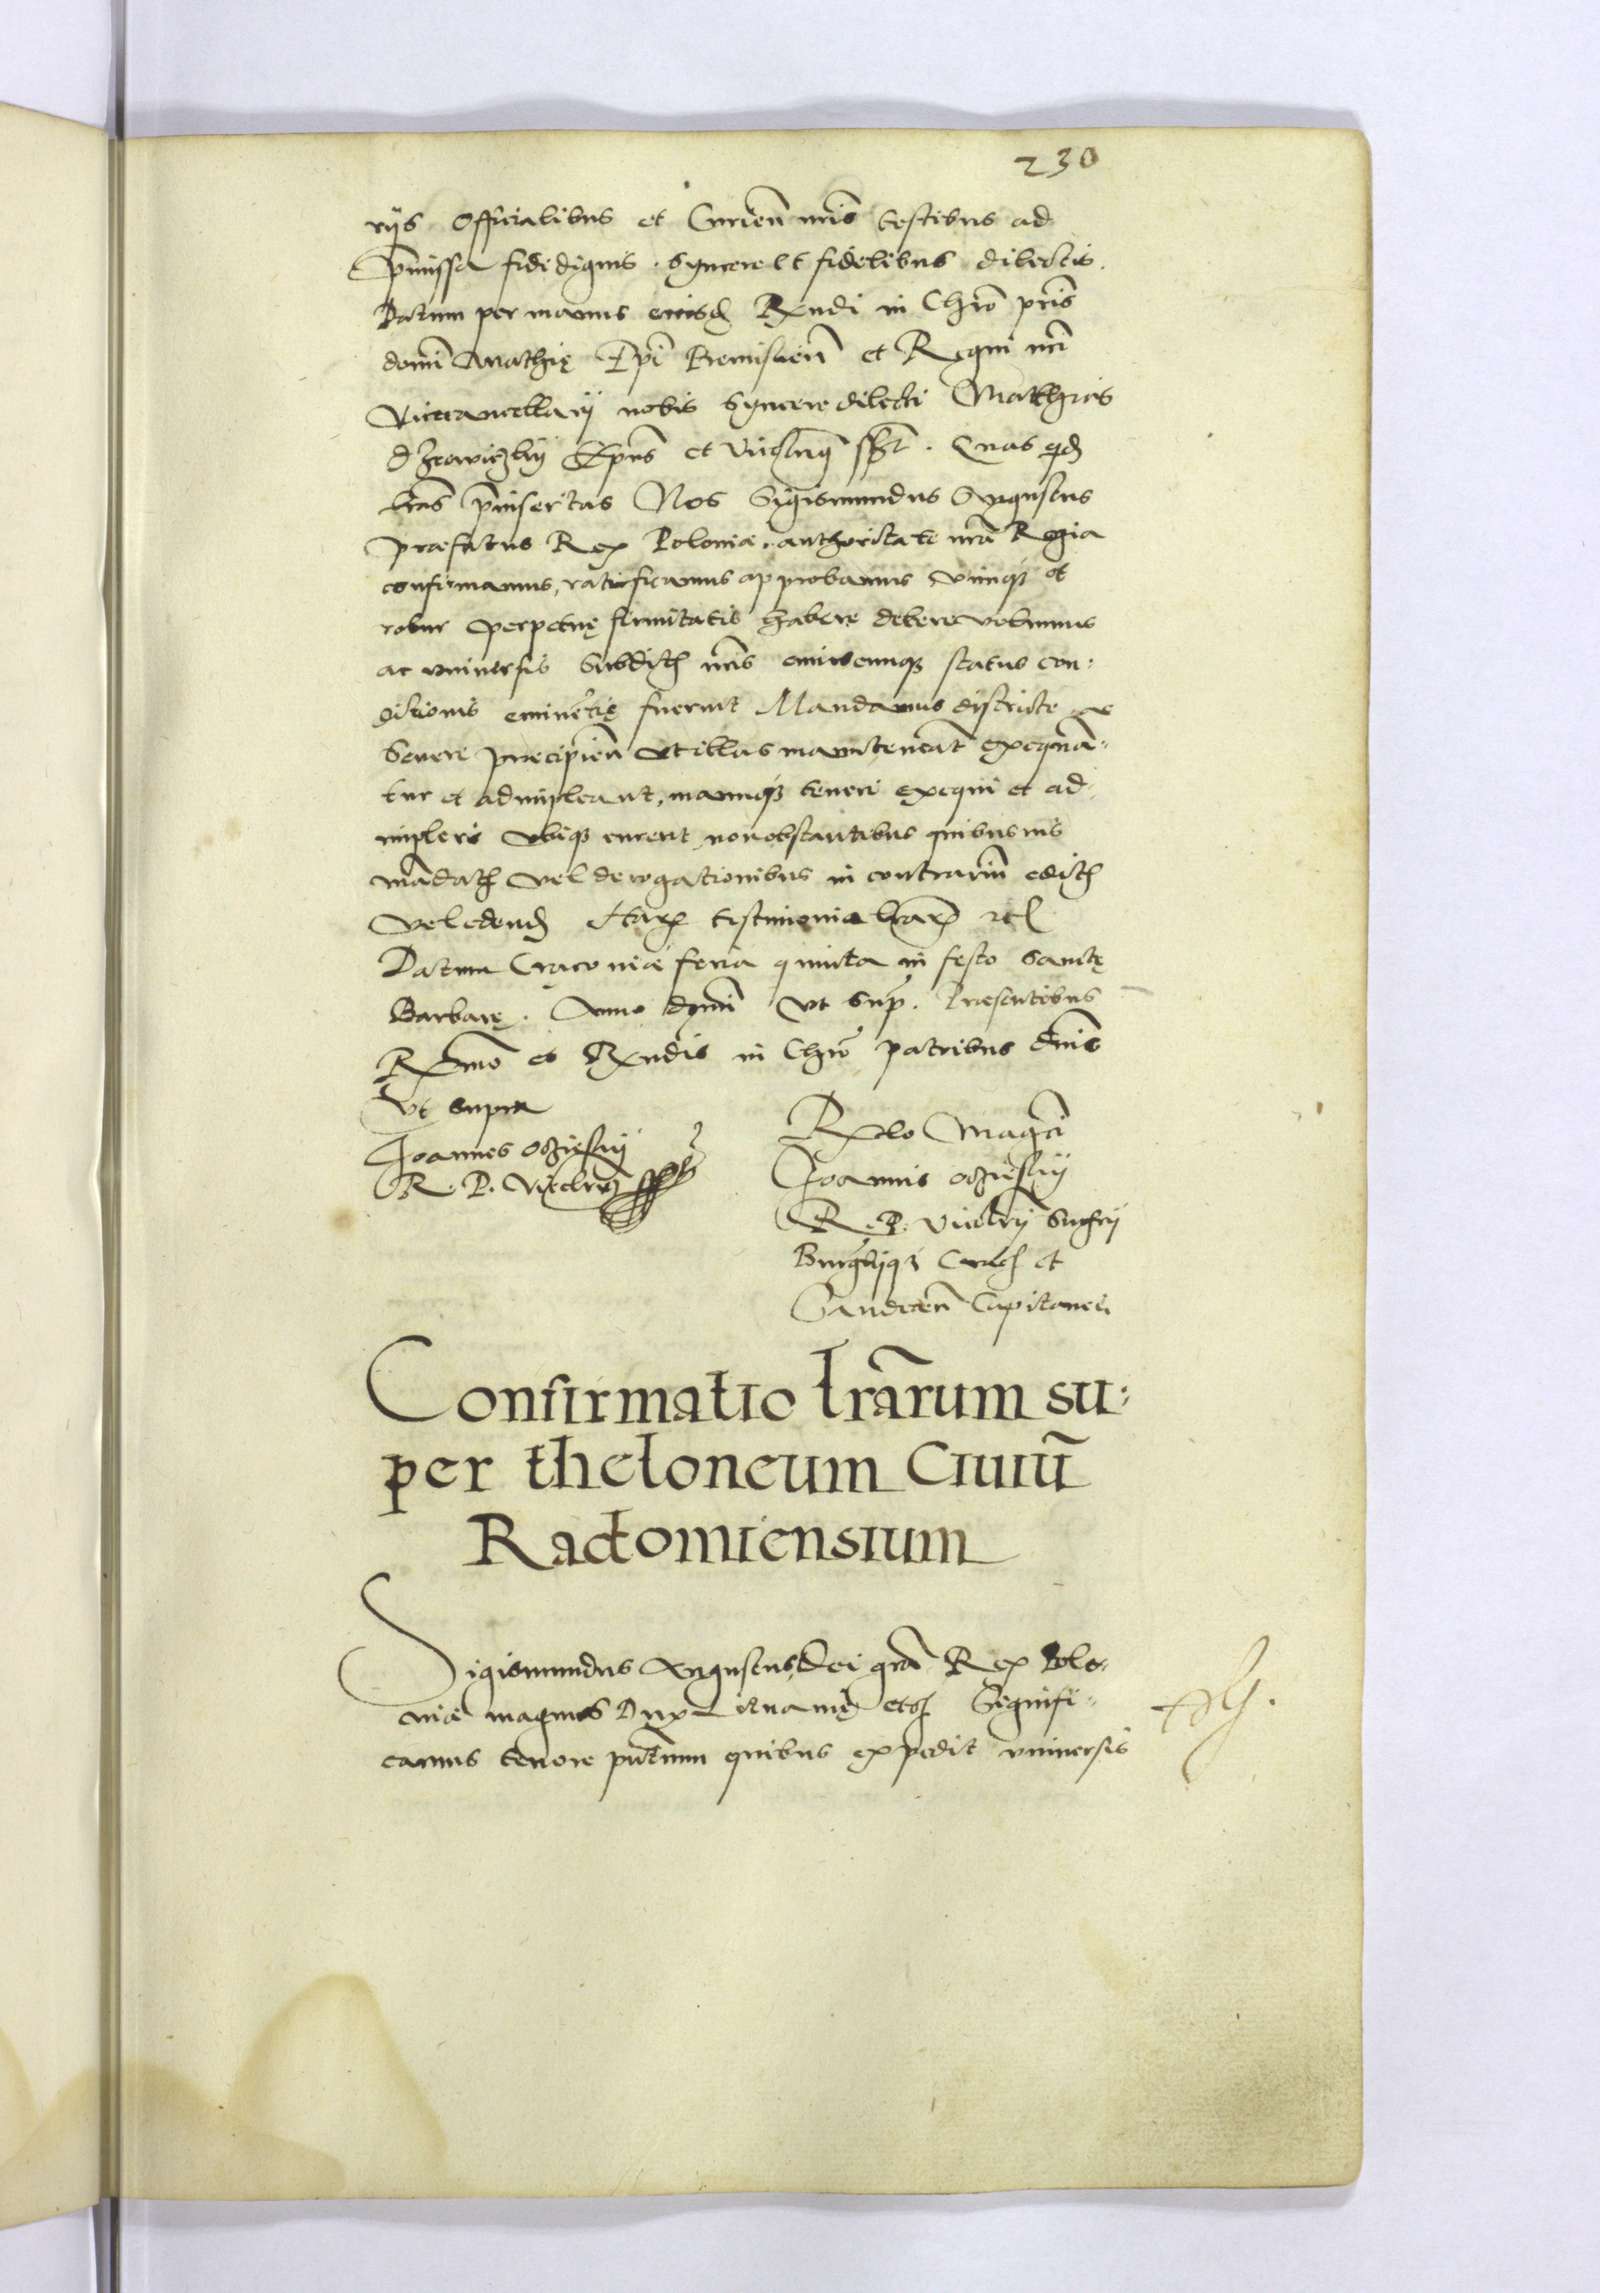 230
rijs Officialibus et Curien̄ nr̄is testibus ad
p̄missa fidedignis. Syncere et fidelibus dilectis.
Datum per manus eiusd Rx̄ndi in Chrō pr̄is
domī Mathię Ep̄i Premislien̄ et Regni nr̄i
Vicecancellarij nobis Syncere dilecti Matthias
Drzewiczkij Ep̄us et Vicecl̄riq sst. Quas qd
lr̄as p̄insertas Nos Sigismundus Augustus
praefatus Rex Poloniæ, authoritate nr̄a Regia
confirmamus, ratificamus approbamus vimq et
robur perpetuę firmitatis habere debere volumus
ac vniuersis Subdit nr̄is cuiuscunq status con-
ditionis eminētię fuerint Mandamus districte ac
Seuere precipien̄ vt illas manuteneāt exequā-
tur et adimpleant, manuq teneri exequi et ad-
impleri vbiq curent nonobstantibus quibusuis
mādat vel derogationibus in contrariū edit
vel edend Harx testimonio lr̄arx etc
Datum Cracouiæ feria quinta in festo Sanctę
Barbarę. Anno domī vt sup. Praesentibus
Rx̄mo et Rx̄ndis in Chrō patribus dn̄is
vt supra
Joannes Oczieskij
R. P. Vicecl̄riq sst
Relō Mag̃ci
Joannis Oczieskij
R. P. Vicecl̄rij Succrij
Burgrijq Crac et
Sandecen̄ Capitanei.
Confirmatio lr̄arum su-
per theloneum Ciuiū
Radomiensium
Sigismundus Augustus Dei gr̄a Rex Polo-
niæ magnus Dux Lituanię etc Signifi-
camus tenore pn̄tium quibus expedit vniuersis